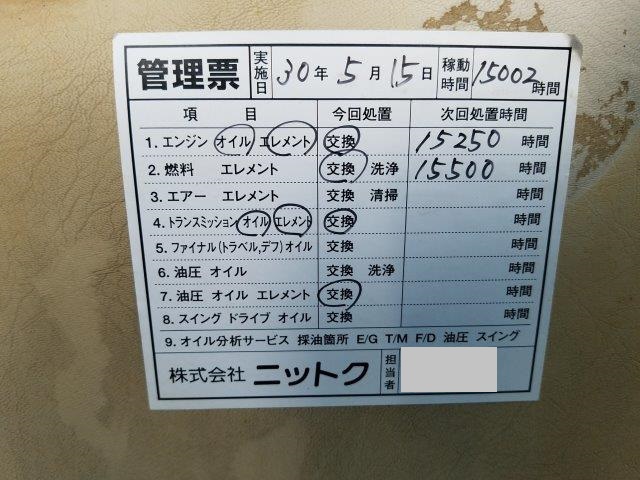 管理票 実施日 30年 5月 15日 稼動時間 15002時間
項 目 今回処置 次回処置時間
1. エンジン オイル エレメント 交換 15250 時間
2. 燃料 エレメント 交換 洗浄 15500 時間
3. エアー エレメント 交換 清掃 時間
4. トランスミッション オイル エレメント 交換 時間
5. ファイナル(トラベル,デフ)オイル 交換 時間
6. 油圧 オイル 交換 洗浄 時間
7. 油圧 オイル エレメント 交換 時間
8. スイング ドライブ オイル 交換 時間
9. オイル分析サービス 採油箇所 E/G T/M F/D 油圧 スイング
株式会社 ニットク 担当者